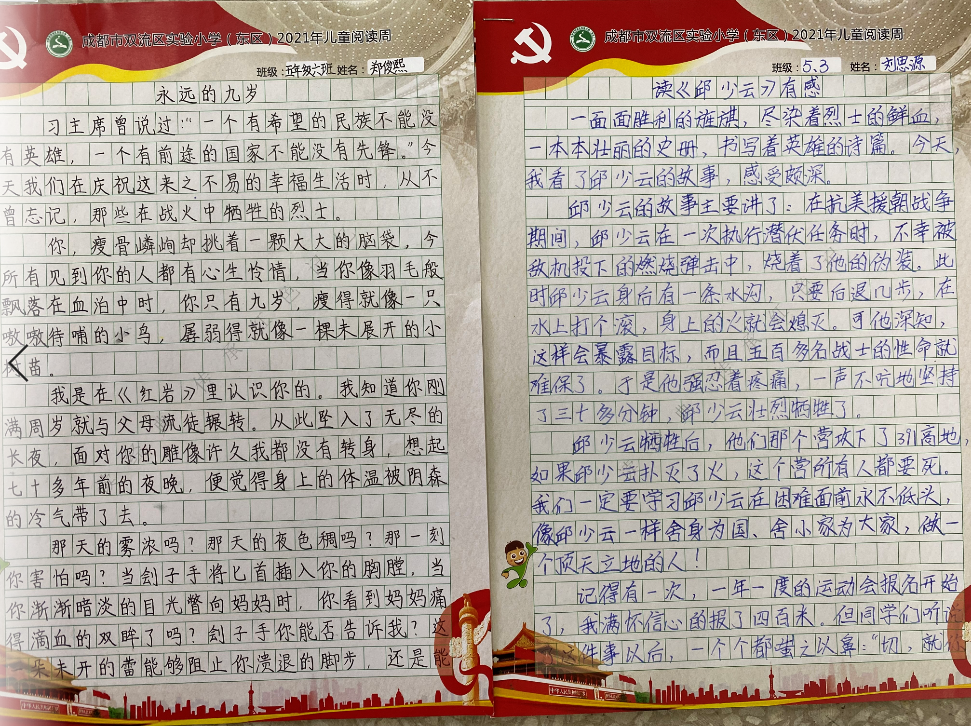 成都市双流区实验小学（东区）2021年儿童阅读周
班级：五年级六班 姓名：郑俊熙
永远的九岁
习主席曾说过：“一个有希望的民族不能没
有英雄，一个有前途的国家不能没有先锋。”今
天我们在庆祝这来之不易的幸福生活时，从不
曾忘记，那些在战火中牺牲的烈士。
你，瘦骨嶙峋却挑着一颗大大的脑袋，令
所有见到你的人都有心生怜情，当你像羽毛般
飘落在血泊中时，你只有九岁，瘦得就像一只
嗷嗷待哺的小鸟，孱弱得就像一棵未展开的小
苗。
我是在《红岩》里认识你的。我知道你刚
满周岁就与父母流徒辗转。从此坠入了无尽的
长夜，面对你的雕像许久我都没有转身，想起
七十多年前的夜晚，便觉得身上的体温被阴森
的冷气带了去。
那天的雾浓吗？那天的夜色稠吗？那一刻
你害怕吗？当刽子手将匕首插入你的胸膛，当
你渐渐暗淡的目光瞥向妈妈时，你看到妈妈痛
得滴血的双眸了吗？刽子手你能否告诉我？这
朵未开的蕾能够阻止你溃退的脚步，还是能
成都市双流区实验小学（东区）2021年儿童阅读周
班级：5.3 姓名：刘思源
读《邱少云》有感
一面面胜利的旌旗，尽染着烈士的鲜血，
一本本壮丽的史册，书写着英雄的诗篇。今天，
我看了邱少云的故事，感受颇深。
邱少云的故事主要讲了：在抗美援朝战争
期间，邱少云在一次执行潜伏任务时，不幸被
敌机投下的燃烧弹击中，烧着了他的伪装。此
时邱少云身后有一条水沟，只要后退几步，在
水上打个滚，身上的火就会熄灭。可他深知，
这样会暴露目标，而且五百多名战士的性命就
难保了。于是他强忍着疼痛，一声不吭地坚持
了三十多分钟，邱少云壮烈牺牲了。
邱少云牺牲后，他们那个营攻下了391高地，
如果邱少云扑灭了火，这个营所有人都要死。
我们一定要学习邱少云在困难面前永不低头，
像邱少云一样舍身为国、舍小家为大家，做一
个顶天立地的人！
记得有一次，一年一度的运动会报名开始
了，我满怀信心的报了四百米。但同学们听
件事以后，一个个都嗤之以鼻：“切，就你